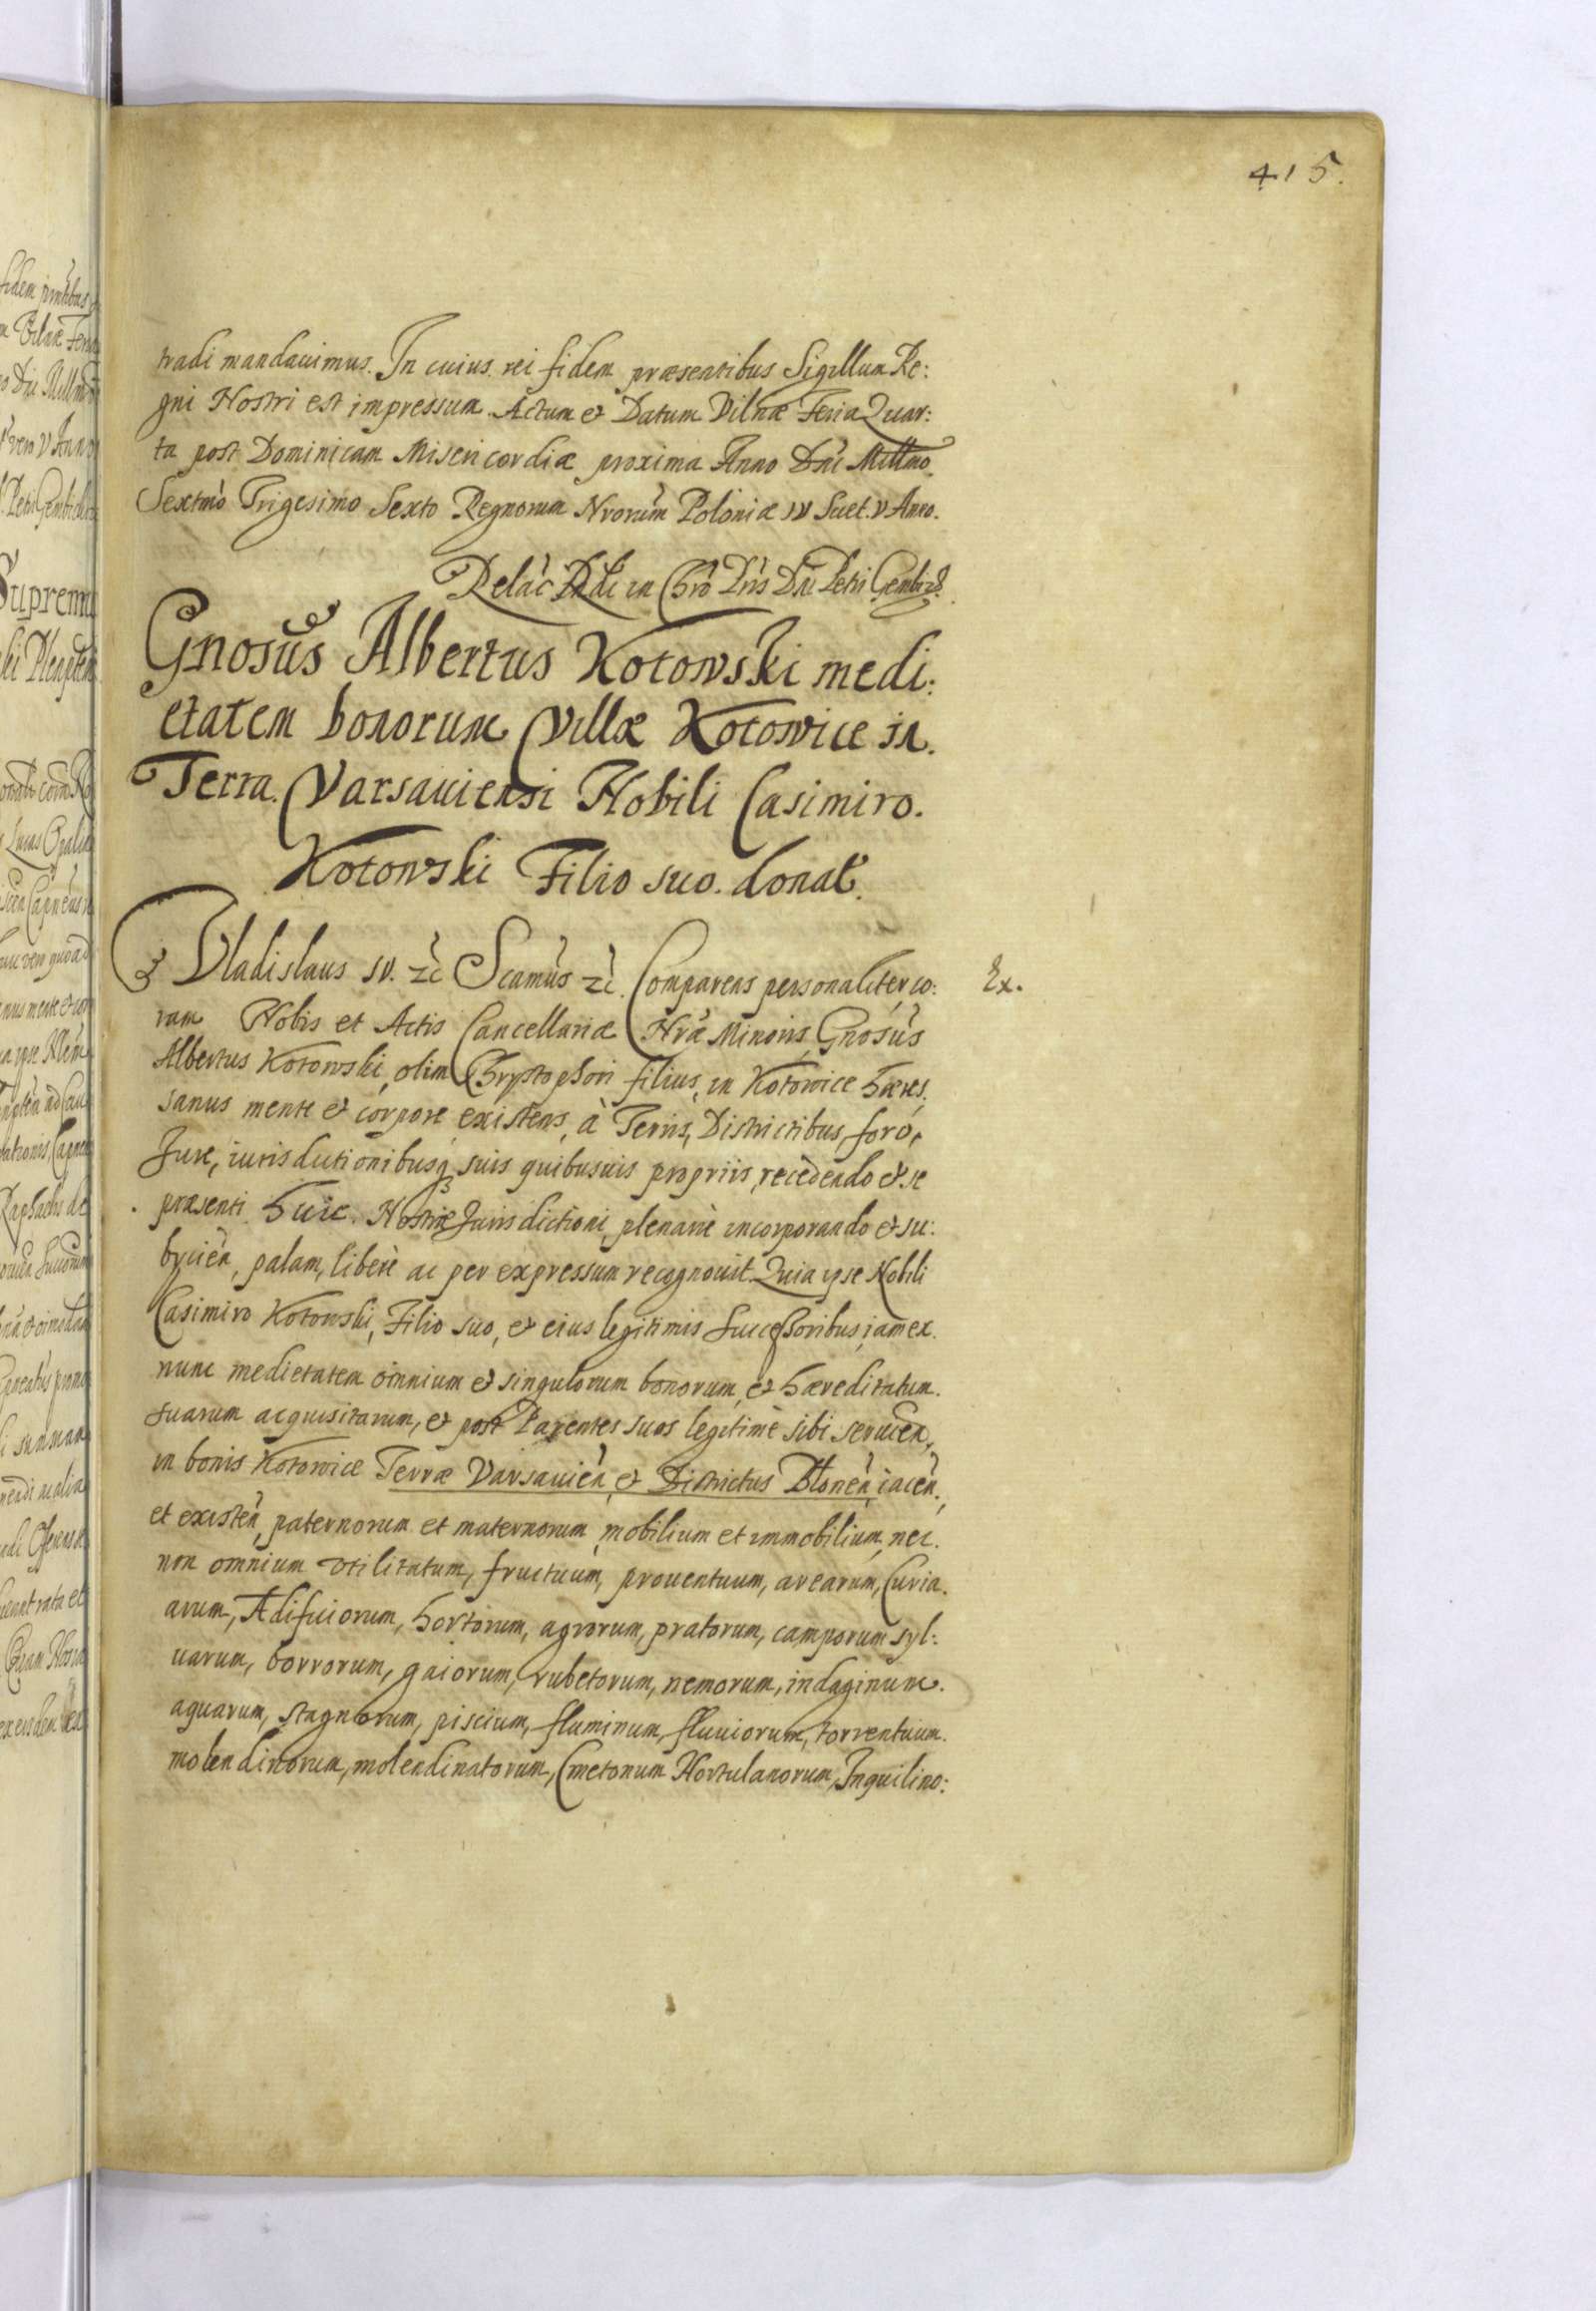 415.
tradi mandauimus. In cuius rei fidem præsentibus Sigillum Re:
gni Nostri est impressum. Actum et Datum Vilnæ Feria Quar:
ta post Dominicam Misericordiæ proxima Anno Dni Millmo
Sextmo Trigesimo Sexto Regnorum Nrorum Poloniæ IV Suet. V Anno.
Relac Rndi in Chro Pris Dni Petri Gembiz.
Gnosus Albertus Kotowski medi:
etatem bonorum Villæ Kotowice in.
Terra. Varsauiensi Nobili Casimiro.
Kotowski Filio suo. donat.
Vladislaus IV. zc Scamus zc. Comparens personaliter co: Ex.
ram Nobis et Actis Cancellariæ Nræ Minoris, Gnosus
Albertus Kotowski, olim Chrystophori filius, in Kotowice hæres,
sanus mente et corpore existens, à Terris, Districtibus, foro,
Jure, iurisdictionibusq suis quibusuis propriis, recedendo et se
præsenti huic. Nostræ Jurisdictioni, plenarie incorporando et su:
bycien, palam, liberè ac per expressum recognouit. Quia ipse Nobili
Casimiro Kotowski, Filio suo, et eius legitimis Successoribus, iam ex.
nunc medietatem omnium et singulorum bonorum, et hæreditatum.
suarum acquisitarum, et post Parentes suos legitimè sibi seruien,
in bonis Kotowice Terræ Varsauien, et Districtus Blonen, iacen,
et existen, paternorum et maternorum, mobilium et immobilium, nec.
non omnium vtilitatum, fructuum, prouentuum, arearum, Curia.
arum, Ædificiorum, hortorum, agrorum, pratorum, camporum syl:
uarum, borrorum, gaiorum, rubetorum, nemorum, indaginum.
aquarum, stagnorum, piscium, fluminum, fluuiorum, torrentium.
molendinorum, molendinatorum, Cmetonum Hortulanorum, Inquilino: